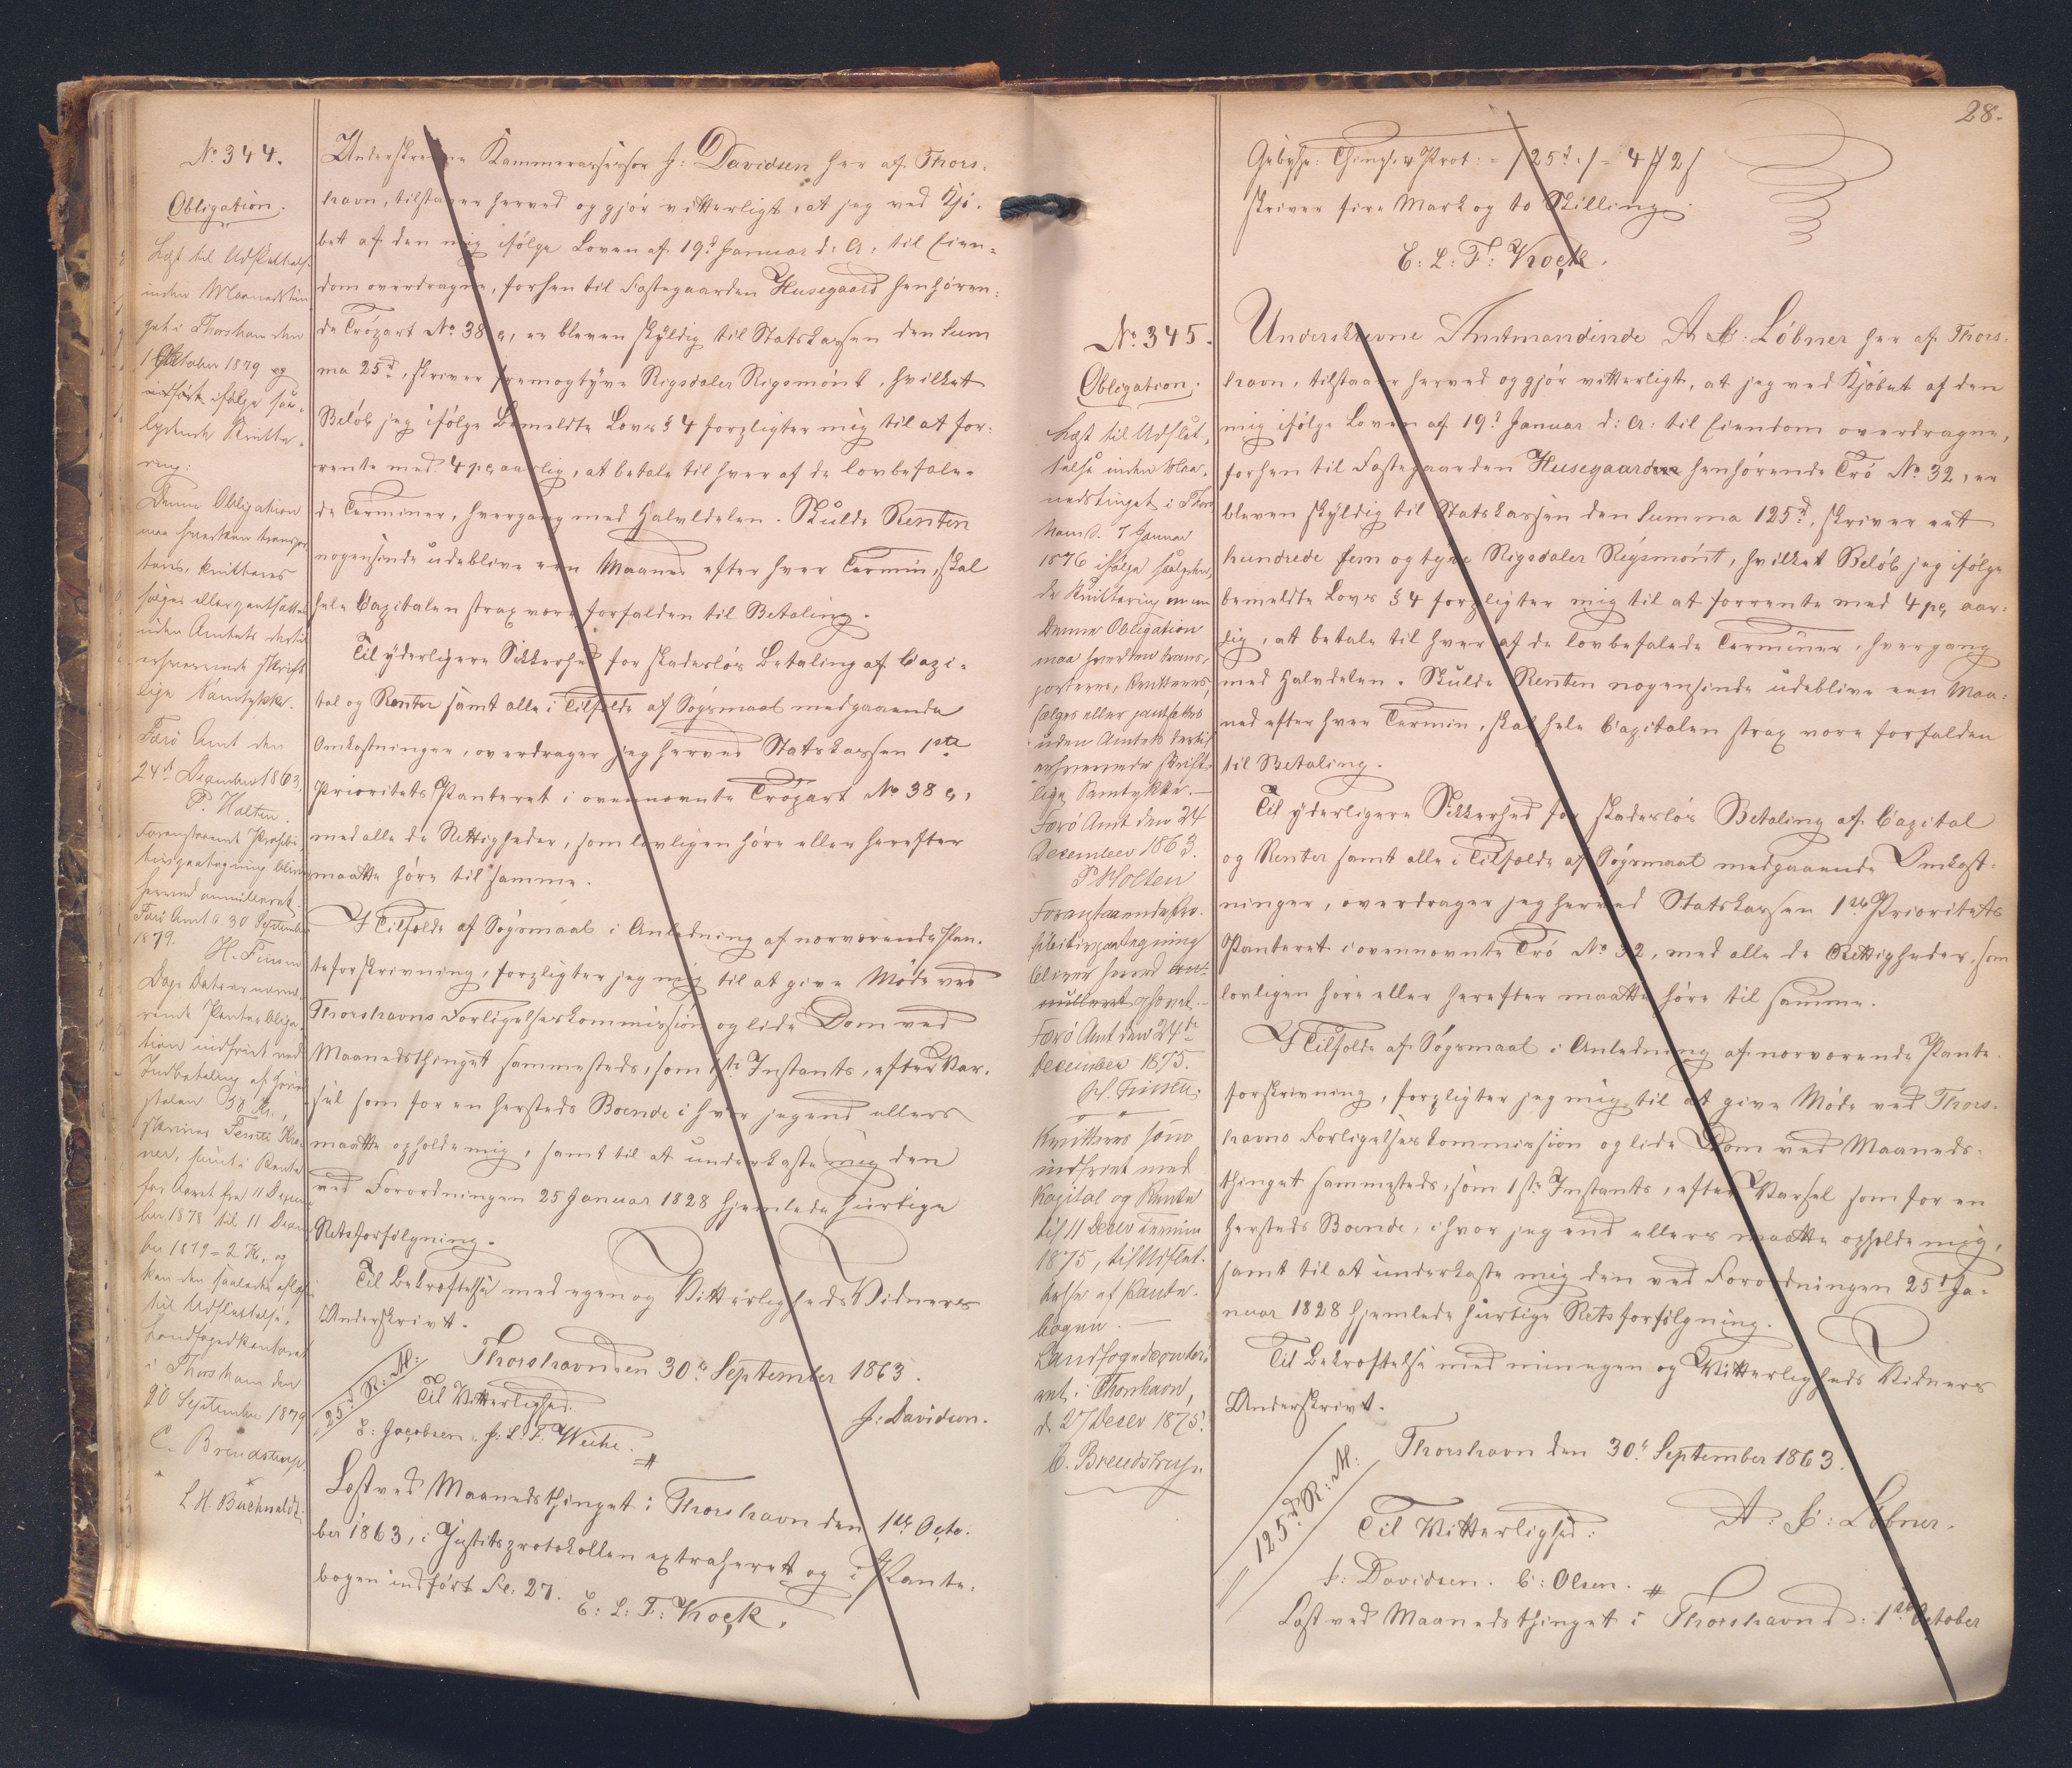 No 344.
Obligation.
Læst til Udslettelse
inden Maanedsthin
get i Thorshavn den
1 Oktober 1879 og
indført ifølge saa-
lydende Kvitte-
ring:
Denne Obligation
maa hverken transpor
teres, kvitteres
sælges eller pantsættes
uden Amtets dertil
erhvervende skrift
lige Samtykke.
Færö Amt den
24de December 1863.
P. Holten.
Foranstaaende Prohibi
tivpaategning bliver
herved annulleret.
Færö Amt d. 30 September
1879.
H. Finsen
Dags Dato er nærvæ-
rende Panteobliga-
tion indfriet ved
Indbetaling af Kapi
talen 50 Kr.,
skriver Femti Kro-
ner, samt i Rente
for Aaret fra 11 Decem
ber 1878 til 11 Decem
ber 1879 = 2 Kr., og
kan den saaledes aflæses
til Udslettelse.
Landfogedkontoret
i Thorshavn den
20 September 1879
C. Brendstrup.
L. H. Buchwaldt.
Underskrevne Kammerassessor J: Davidsen her af Thors-
havn, tilstaaer herved og gjør vitterligt, at jeg ved Kjö-
bet af den mig ifølge Loven af 19d Januar d: A: til Eien-
dom overdragne, forhen til Fæstegaarden Husegaard henhören-
de Tröpart No 38 e, er bleven skyldig til Statskassen den Sum
ma 25d, skriver fremogtyve Rigsdaler Rigsmönt, hvilket
Belöb jeg ifölge bemeldte Lovs § 4 forpligter mig til at for-
rente med 4 pC aarlig, at betale til hver af de lovbefale-
de Terminer, hvergang med Halvdelen. Skulde Renten
nogensinde udeblive een Maaned efter hver Termin, skal
hele Capitalen strax være forfalden til Betaling.
Til yderligere Sikkerhed for skadeslös Betaling af Capi-
tal og Renter samt alle i Tilfælde af Sögsmaal medgaaende
Omkostninger, overdrager jeg herved Statskassen 1ste
Prioritets Panteret i ovennævnte Tröpart No 38 e,
med alle de Rettigheder, som lovligen höre eller herefter
maatte höre til samme.
I Tilfælde af Sögsmaal i Anledning af nærværende Pan-
teforskrivning, forpligter jeg mig til at give Möde ved
Thorshavns Forligelseskommission og lide Dom ved
Maanedsthinget sammesteds, som 1ste Instants, efter Var-
sel som for en hersteds Boende i hvor jeg end ellers
maatte opholde mig, samt til at underkaste mig den
ved Forordningen 25 Januar 1828 hjemlede hurtige
Retsforfölgning.
Til Bekræftelse med egen og Vitterligheds Vidners
Underskrivt.
Thorshavn den 30te September 1863.
25d R: M:
Til Vitterlighed:
J: Davidsen.
E: Jacobsen. J: L: F: Weihe.
Læst ved Maanedsthinget i Thorshavn den 1ste Octo-
ber 1863, i Justitsprotokollen extraheret og i Pante-
bogen indfört Fol. 27.
E: L: F: Kock.
28.
Gebyhr: Thingl. & Prot: = /25d:/ = 4 ℔ 2 ß
skriver fire Mark og to Skilling
E: L: F: Kock.
No 345.
Obligation.
Læst til Udslet-
telse inden Maa-
nedstinget i Thors
havn d. 7 Januar
1876 ifölge saalyden-
de Kvittering mm
Denne Obligation
maa hverken trans-
porteres, kvitteres,
sælges eller pantsættes
uden Amtets dertil
erhvervende skrift-
lige Samtykke.
Færö Amt den 24
December 1863.
P Holten
Foranstaaende Pro-
hibitivpaategning
bliver herved an-
nulleret ophævet.
Færö Amt den 24de
December 1875.
H. Finsen.
Kvitteres som
indfriet med
Kapital og Rente
til 11 Decbr Termin
1875, til Udslet-
telse af Pante-
bogen.
Landfogedconto-
ret i Thorshavn,
d. 27 Decbr 1875.
C. Brendstrup.
Underskrevne Amtmandinde A C: Löbner her af Thors-
havn, tilstaaer herved og gjör vitterligt, at jeg ved Kjöbet af den
mig ifölge Loven af 19d Januar d: A: til Eiendom overdragne,
forhen til Fæstegaarden Husegaarden henhörende Trö No 32, er
bleven skyldig til Statskassen den Summa 125d, skriver eet
hundrede fem og tyve Rigsdaler Rigsmönt, hvilket Belöb jeg ifölge
bemeldte Lovs § 4 forpligter mig til at forrente med 4 pC aar-
lig, at betale til hver af de lovbefalede Terminer, hvergang
med Halvdelen. Skulde Renten nogensinde udeblive een Maa-
ned efter hver Termin, skal hele Capitalen strax være forfalden
til Betaling.
Til yderligere Sikkerhed for skadeslös Betaling af Capital
og Renter samt alle i Tilfælde af Sögsmaal medgaaende Omkost-
ninger, overdrager jeg herved Statskassen 1ste Prioritets
Panteret i ovennævnte Trö No 32, med alle de Rettigheder, som
lovligen höre eller herefter maatte höre til samme.
I Tilfælde af Sögsmaal i Anledning af nærværende Pante-
forskrivning, forpligter jeg mig til at give Möde ved Thors-
havns Forligelseskommission og lide Dom ved Maaneds-
thinget sammesteds, som 1ste Instants, efter Varsel som for en
hersteds Boende, i hvor jeg end ellers maatte opholde mig,
samt til at underkaste mig den ved Forordningen 25d Ja-
nuar 1828 hjemlede hurtige Retsforfölgning.
Til Bekræftelse med min egen og Vitterligheds Vidners
Underskrivt.
Thorshavn den 30te September 1863.
125d R: M:
A: C: Löbner.
Til Vitterlighed:
J: Davidsen. C: Olsen.
Læst ved Maanedsthinget i Thorshavn d: 1ste October